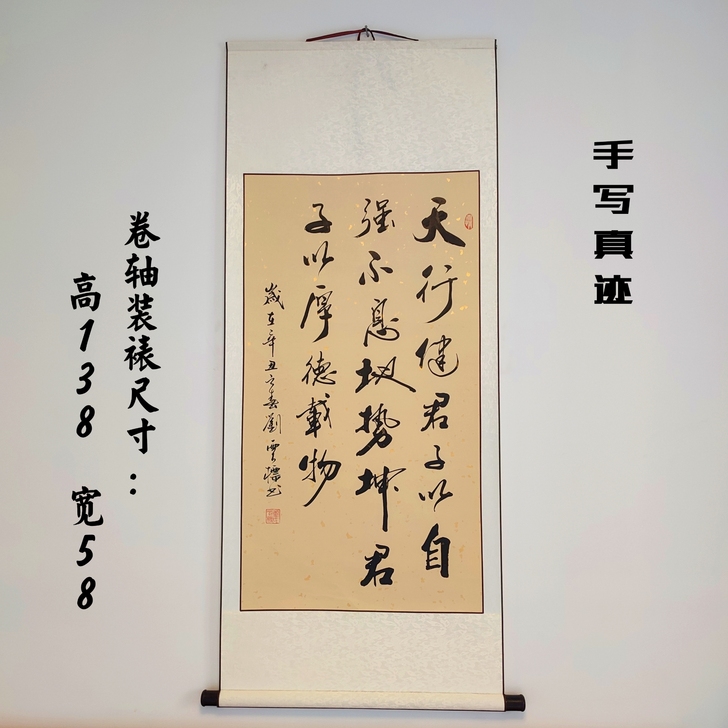 手写真迹
天行健君子以自
强不息地势坤君
子以厚德載物
歲在辛丑之春劉雲书
卷轴装裱尺寸：
高138 宽58